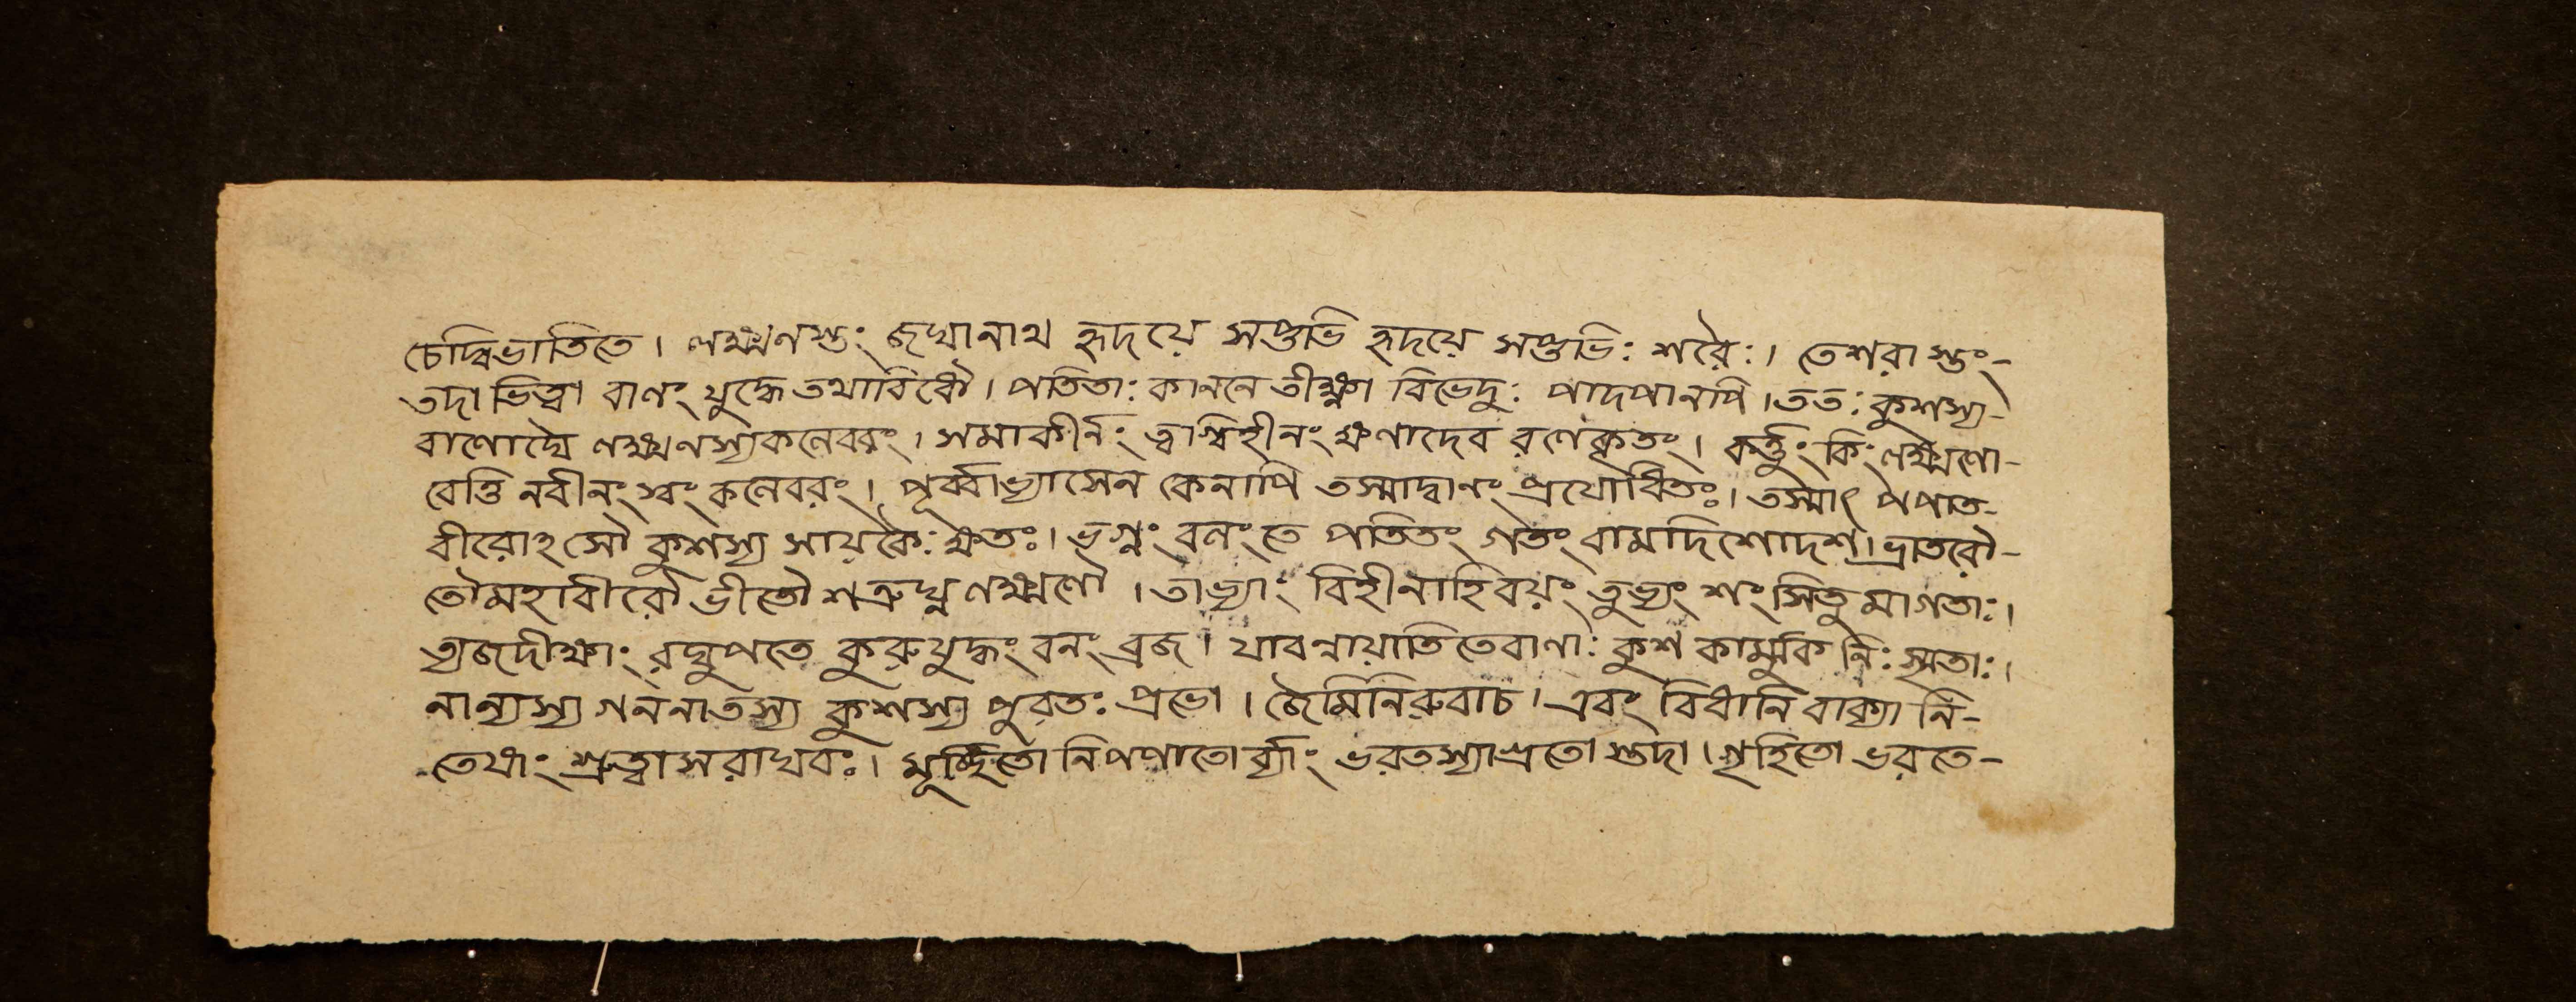 চেদ্বিভাতিতে। লক্ষ্মণস্তং জঘানাথ হৃদয়ে সপ্তভি হৃদয়ে সপ্তভিঃ শরৈঃ। তেশরা স্তং-
তদা ভিত্বা বাণং যুদ্ধে তথাবিধৌ। পতিতাঃ কাননে তীক্ষ্ণা বিভেদুঃ পাদপানপি। ততঃ কুশস্য-
বাণোঘৈ লক্ষ্মণস্যকলেবরং। সমাকীর্নং ত্বাগ্বিহীনং ক্ষণাদেব রণেকৃতং। কর্ত্তুং কিং লক্ষ্মণো-
বেত্তি নবীনং স্বং কলেবরং। পূর্ব্বাভ্যাসেন কেনাপি তস্মাদ্বাণং প্রযোধিতঃ। তস্মাৎ পপাত-
বীরোঽসৌ কুশস্য সায়কৈঃ ক্ষতঃ। ভগ্নং বলং তে পতিতং গতং বামাদিশোদশ। ভ্রাতরৌ-
তৌমহাবীরৌ ভীতৌ শত্রুঘ্ন লক্ষ্মণৌ। তাভ্যাং বিহীনাহিবয়ং তুভ্যং শংসিতুমাগতাঃ।
ত্যজদীক্ষাং রঘুপতে কুরুযুদ্ধং বনং ব্রজ। যাবন্নায়াতি তেবাণাঃ কুশ কার্মুক নিঃসৃতাঃ।
নান্যস্য গননাতস্য কুশস্য পুরতঃ প্রভো। জৈমিনিরুবাচ। এবং বিধানি বাক্যা নি-
তেষাং শ্রুত্বাসরাঘবঃ। মূর্চ্ছিতো নিপপাতোর্ব্যাং ভরতস্যাগ্রতো স্তদা। গৃহিতো ভরতে-